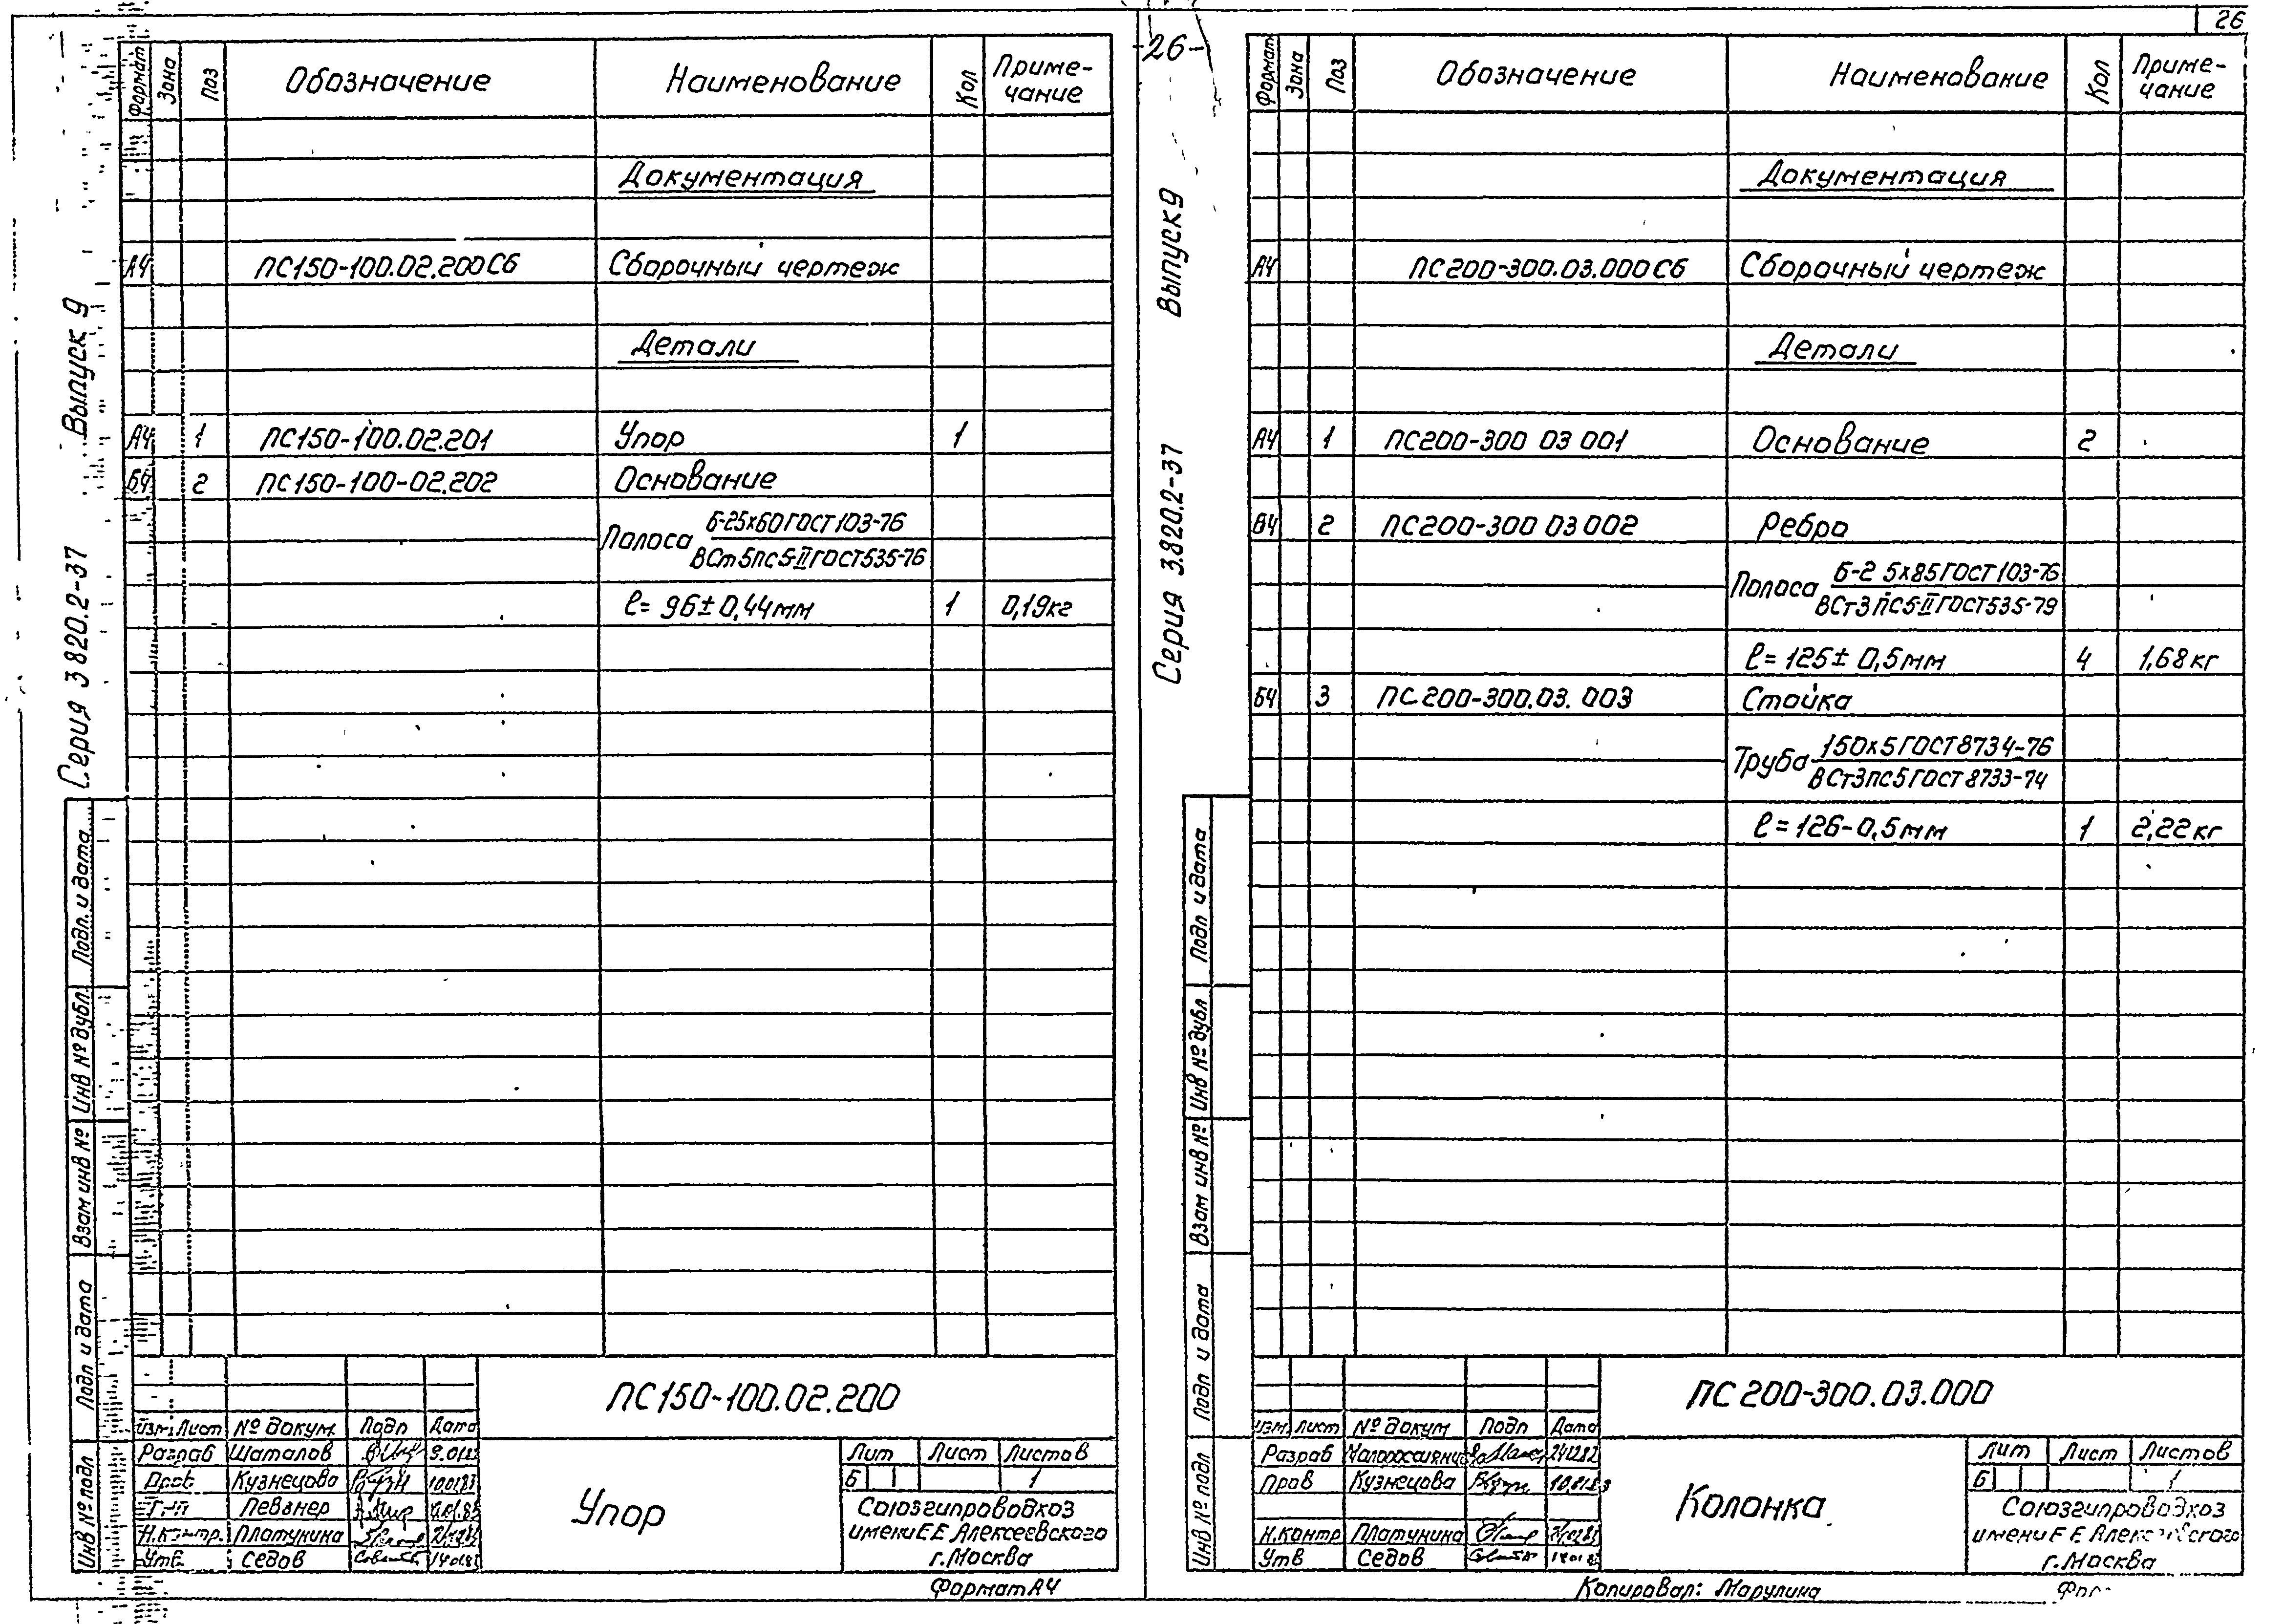 26
-26-
Серия 3 820.2-37 Выпуск 9
Формат Зона Поз Обозначение Наименование Кол Приме-
чание
Документация
А4 ПС150-100.02.200Сб Сборочный чертеж
Детали
А4 1 ПС150-100.02.201 Упор 1
БЧ 2 ПС150-100-02.202 Основание
Полоса Б-25х60 ГОСТ 103-76
ВСт5пс5-II ГОСТ535-76
ℓ= 96± 0,44мм 1 0,19кг
Подп. и дата
Инв № дубл.
Взам инв №
Подп и дата
Инв № подл
ПС150-100.02.200
Изм. Лист № докум. Подп Дата
Разраб Шаталов
Пров Кузнецова 10.01.83
ГИП Певзнер
Н.контр. Платунина
Утв Седов 14.01.83
Упор
Лит Лист Листов
Б 1
Союзгипроводхоз
имени Е.Е Алексеевского
г.Москва
Формат А4
Серия 3.820.2-37 Выпуск 9
Формат Зона Поз Обозначение Наименование Кол Приме-
чание
Документация
А4 ПС200-300.03.000Сб Сборочный чертеж
Детали
А4 1 ПС200-300 03 001 Основание 2
БЧ 2 ПС200-300 03 002 Ребро
Полоса Б-2 5х85 ГОСТ 103-76
ВСт3пс5-II ГОСТ535-79
ℓ= 125± 0,5мм 4 1,68 кг
БЧ 3 ПС200-300.03. 003 Стойка
Труба 150х5 ГОСТ 8734-76
ВСт3пс5 ГОСТ 8733-74
ℓ= 126-0,5мм 1 2,22 кг
Подп и дата
Инв № дубл
Взам инв №
Подп и дата
Инв № подл
ПС 200-300.03.000
Изм. Лист № докум Подп Дата
Разраб 24.12.82
Пров Кузнецова 10.01.83
Н.контр Платунина
Утв Седов 14.01.83
Колонка
Лит Лист Листов
Б 1
Союзгипроводхоз
имени Е Е Алексеевского
г.Москва
Копировал: Марулина